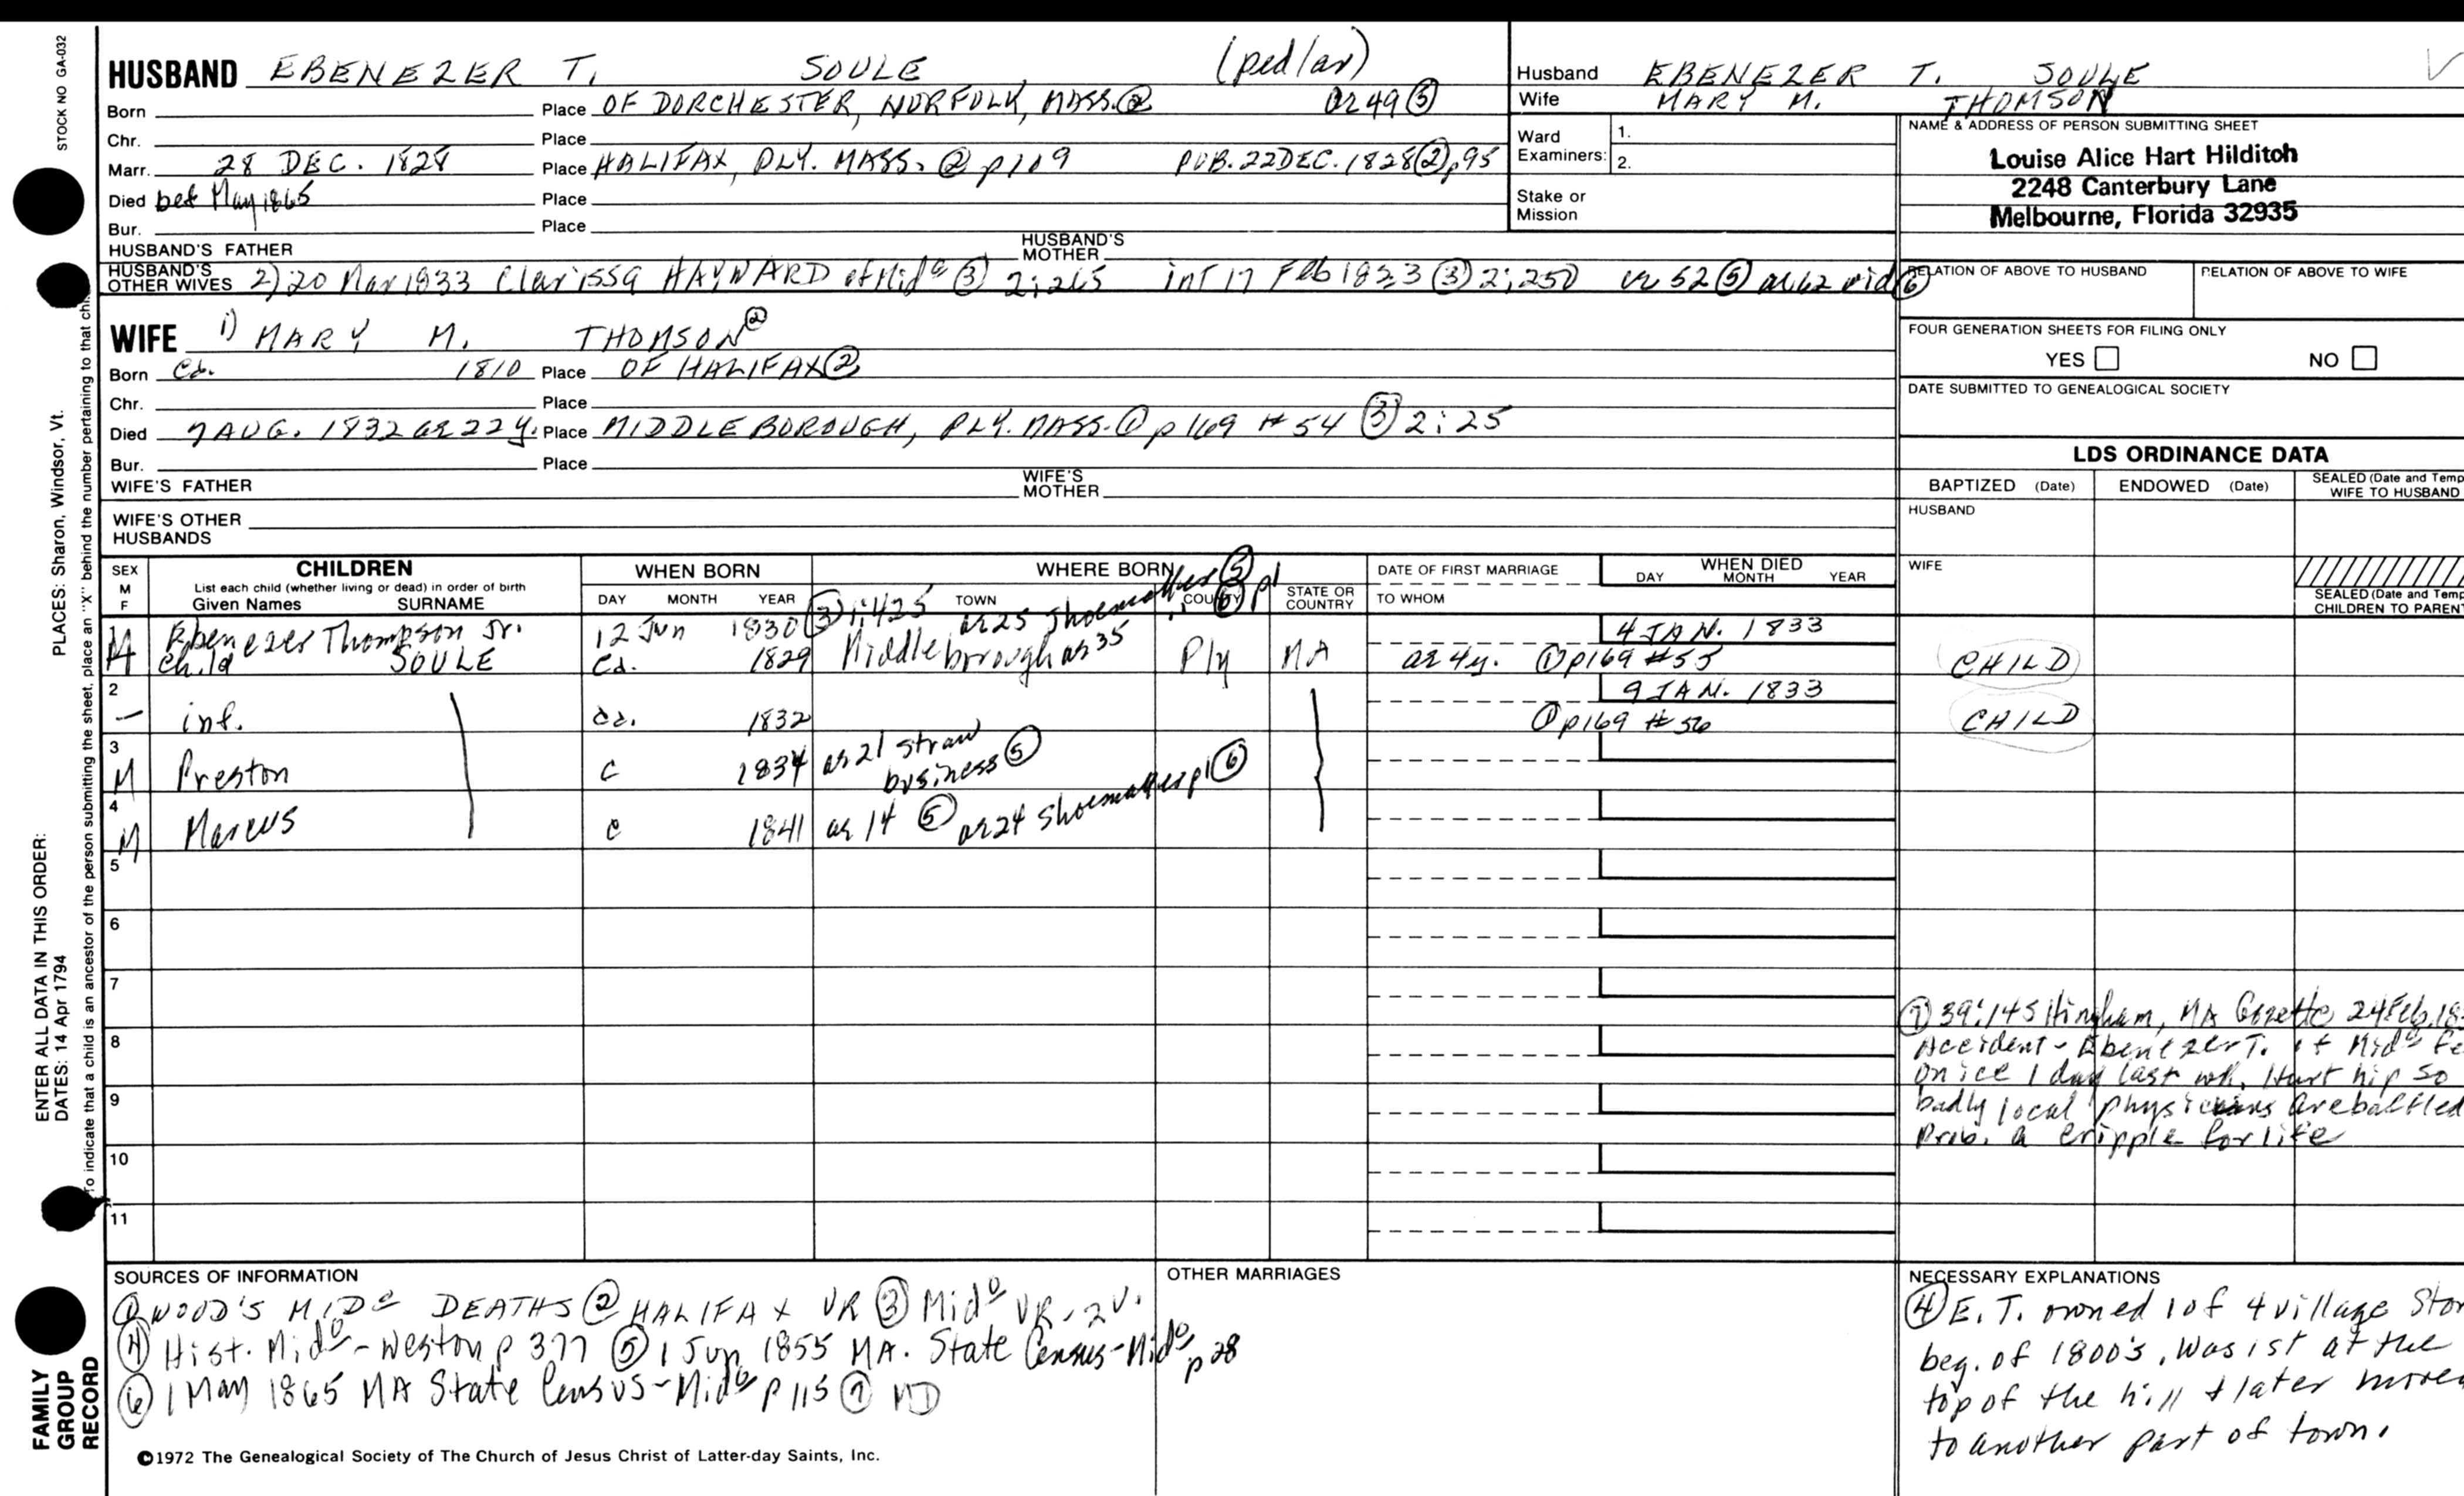 STOCK NO GA-032
PLACES: Sharon, Windsor, Vt.
ENTER ALL DATA IN THIS ORDER:
DATES: 14 Apr 1794
To indicate that a child is an ancestor of the person submitting the sheet, place an "X" behind the number pertaining to that chi
FAMILY GROUP RECORD
HUSBAND EBENEZER T. SOULE (pedlar)
Born Place OF DORCHESTER, NORFOLK, MASS. ② ae 49 ⑤
Chr. Place
Marr. 28 DEC. 1828 Place HALIFAX, PLY. MASS. ② p109 PUB. 22 DEC. 1828 ② p95
Died bef May 1865 Place
Bur. Place
HUSBAND'S FATHER HUSBAND'S MOTHER
HUSBAND'S OTHER WIVES 2) 20 Mar 1833 Clarissa HAYWARD of Mido ③ 2:265 int 17 Feb 1833 ③ 2:250 ae 52 ⑤ ae 62 wid ⑥
WIFE 1) MARY M. THOMSON ②
Born Ca. 1810 Place OF HALIFAX ②
Chr. Place
Died 7 AUG. 1832 ae 22 y. Place MIDDLEBOROUGH, PLY. MASS. ① p 169 # 54 ③ 2:25
Bur. Place
WIFE'S FATHER WIFE'S MOTHER
WIFE'S OTHER HUSBANDS
Husband EBENEZER T. SOULE
Wife MARY M. THOMSON
Ward Examiners: 1.
2.
Stake or Mission
NAME & ADDRESS OF PERSON SUBMITTING SHEET
Louise Alice Hart Hilditch
2248 Canterbury Lane
Melbourne, Florida 32935
RELATION OF ABOVE TO HUSBAND RELATION OF ABOVE TO WIFE
FOUR GENERATION SHEETS FOR FILING ONLY
YES NO
DATE SUBMITTED TO GENEALOGICAL SOCIETY
LDS ORDINANCE DATA
BAPTIZED (Date) ENDOWED (Date) SEALED (Date and Temp
WIFE TO HUSBAND
HUSBAND
WIFE
SEALED (Date and Temp
CHILDREN TO PAREN
SEX M F CHILDREN WHEN BORN WHERE BORN DATE OF FIRST MARRIAGE WHEN DIED
List each child (whether living or dead) in order of birth
Given Names SURNAME DAY MONTH YEAR TOWN COUNTY STATE OR COUNTRY TO WHOM DAY MONTH YEAR
M Ebenezer Thompson Jr. 12 Jun 1830 ③ 1:425 ae 25 shoemaker ⑤ ⑥ p1 4 JAN. 1833
child SOULE Ca. 1829 Middleborough ae 35 Ply MA ae 4y. ① p169 #55 CHILD
2 9 JAN. 1833
— inf. ca. 1832 ① p169 # 56 CHILD
3 M Preston c 1834 ae 21 straw business ⑤
4 M Marcus c 1841 ae 14 ⑤ ae 24 shoemaker p1 ⑥
5
6
7
8
9
10
11
⑦ 39:145 Hingham, MA Gazette 24 Feb. 18
Accident - Ebenezer T. of Mido fe
on ice 1 day last wk. Hurt hip so
badly local physicians are baffled
Prob. a cripple for life
SOURCES OF INFORMATION
① WOOD'S MIDo DEATHS ② HALIFAX VR ③ Mido VR-2v.
④ Hist. Mido - Weston p 377 ⑤ 1 Jun 1855 MA. State Census-Mido p 28
⑥ 1 May 1865 MA State Census-Mido p 115 ⑦ MD
OTHER MARRIAGES
NECESSARY EXPLANATIONS
④ E. T. owned 1 of 4 village Stor
beg. of 1800's. Was 1st at the
top of the hill & later moved
to another part of town.
©1972 The Genealogical Society of The Church of Jesus Christ of Latter-day Saints, Inc.